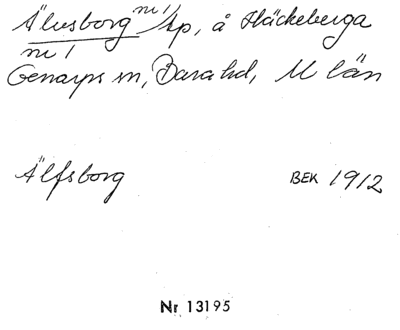 Älvsborg nr 1/tp, å Häckeberga
nr 1
Genarps sn, Bara hd, M län
Älfsborg BEK 1912
Nr 13195